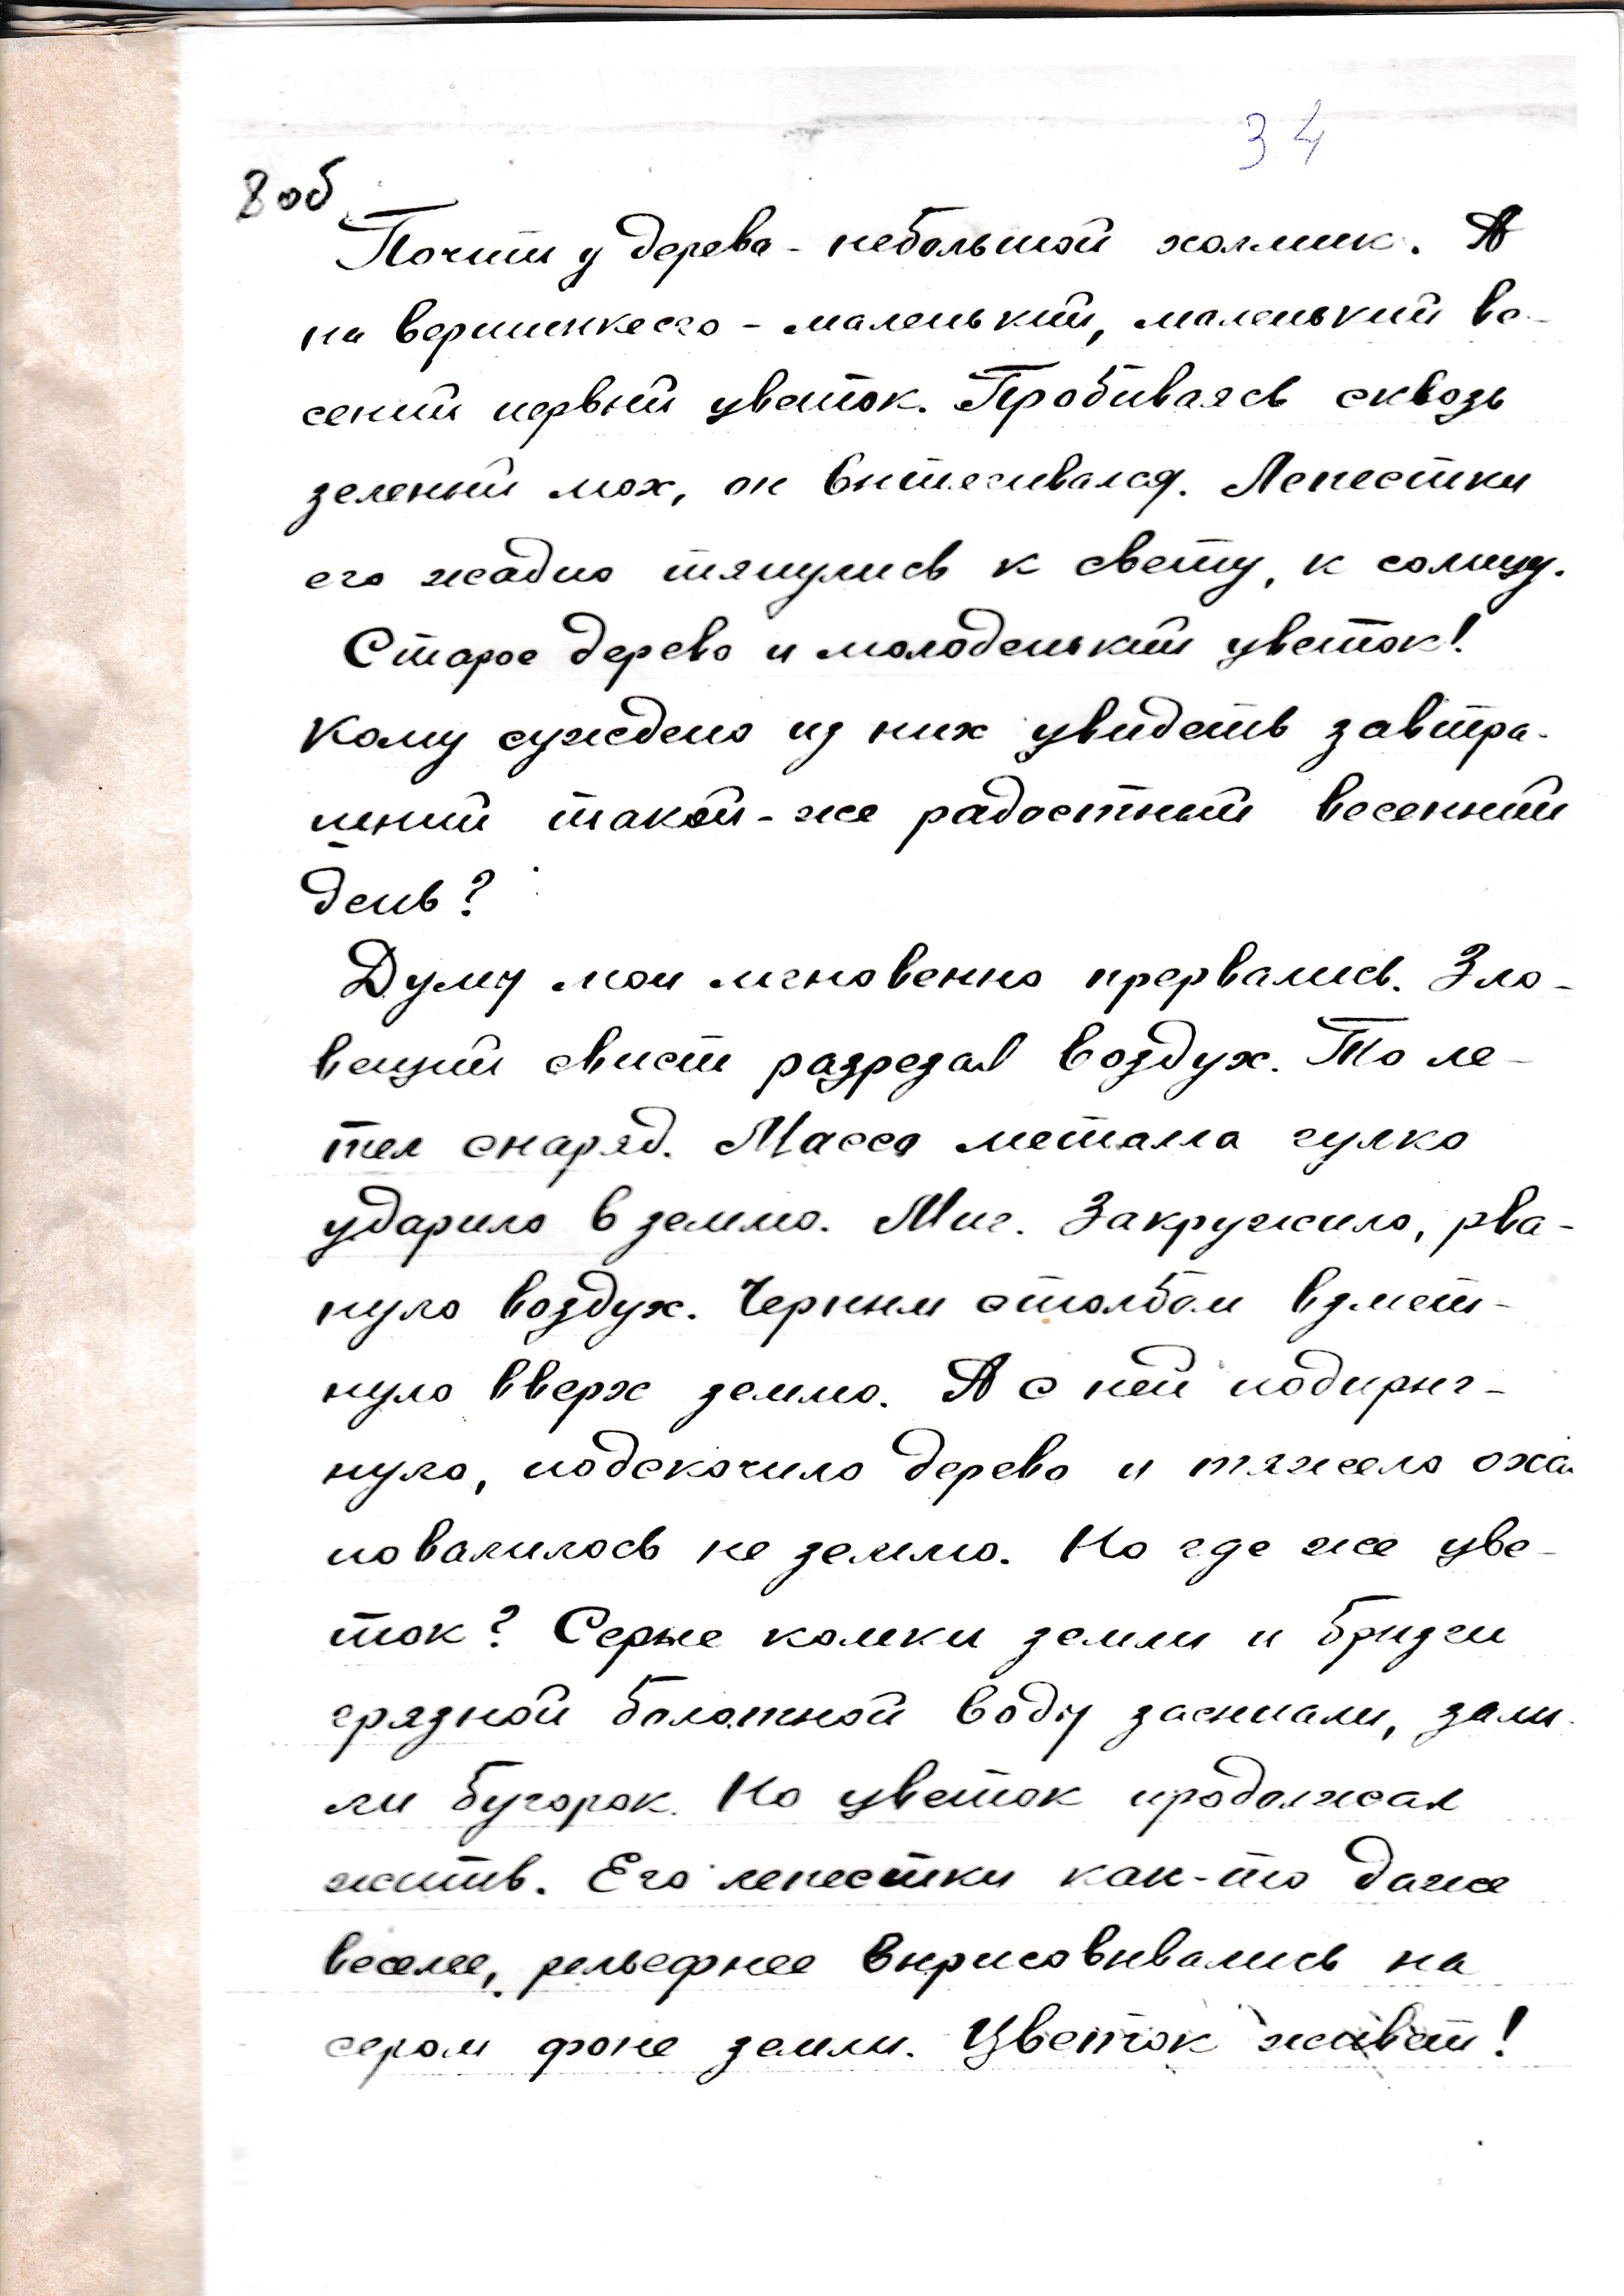 34
8 об
Почти у дерева - небольшой холмик. А
на вершинке его - маленький, маленький ве-
сений первый цветок. Пробиваясь сквозь
зеленый мох, он вытягивался. Лепестки
его жадно тянулись к свету, к солнцу.
Старое дерево и молоденький цветок!
Кому суждено из них увидеть завтра-
шний такой-же радостный весенний
день?
Думы мои мгновенно прервались. Зло-
вещий свист разрезал воздух. То ле-
тел снаряд. Масса метала гулко
ударила в землю. Миг. Закружило, рва-
нуло воздух. Черным столбом взмет-
нуло вверх землю. А с ней подпрыг-
нуло, подскочило дерево и тяжело охая
повалилось не землю. Но где же цве-
ток? Серые комки земли и брызги
грязной болотной воды засыпали, зали-
ли бугорок. Но цветок продолжал
жить. Его лепестки как-то даже
веселее, рельефнее вырисовывались на
сером фоне земли. Цветок живет!